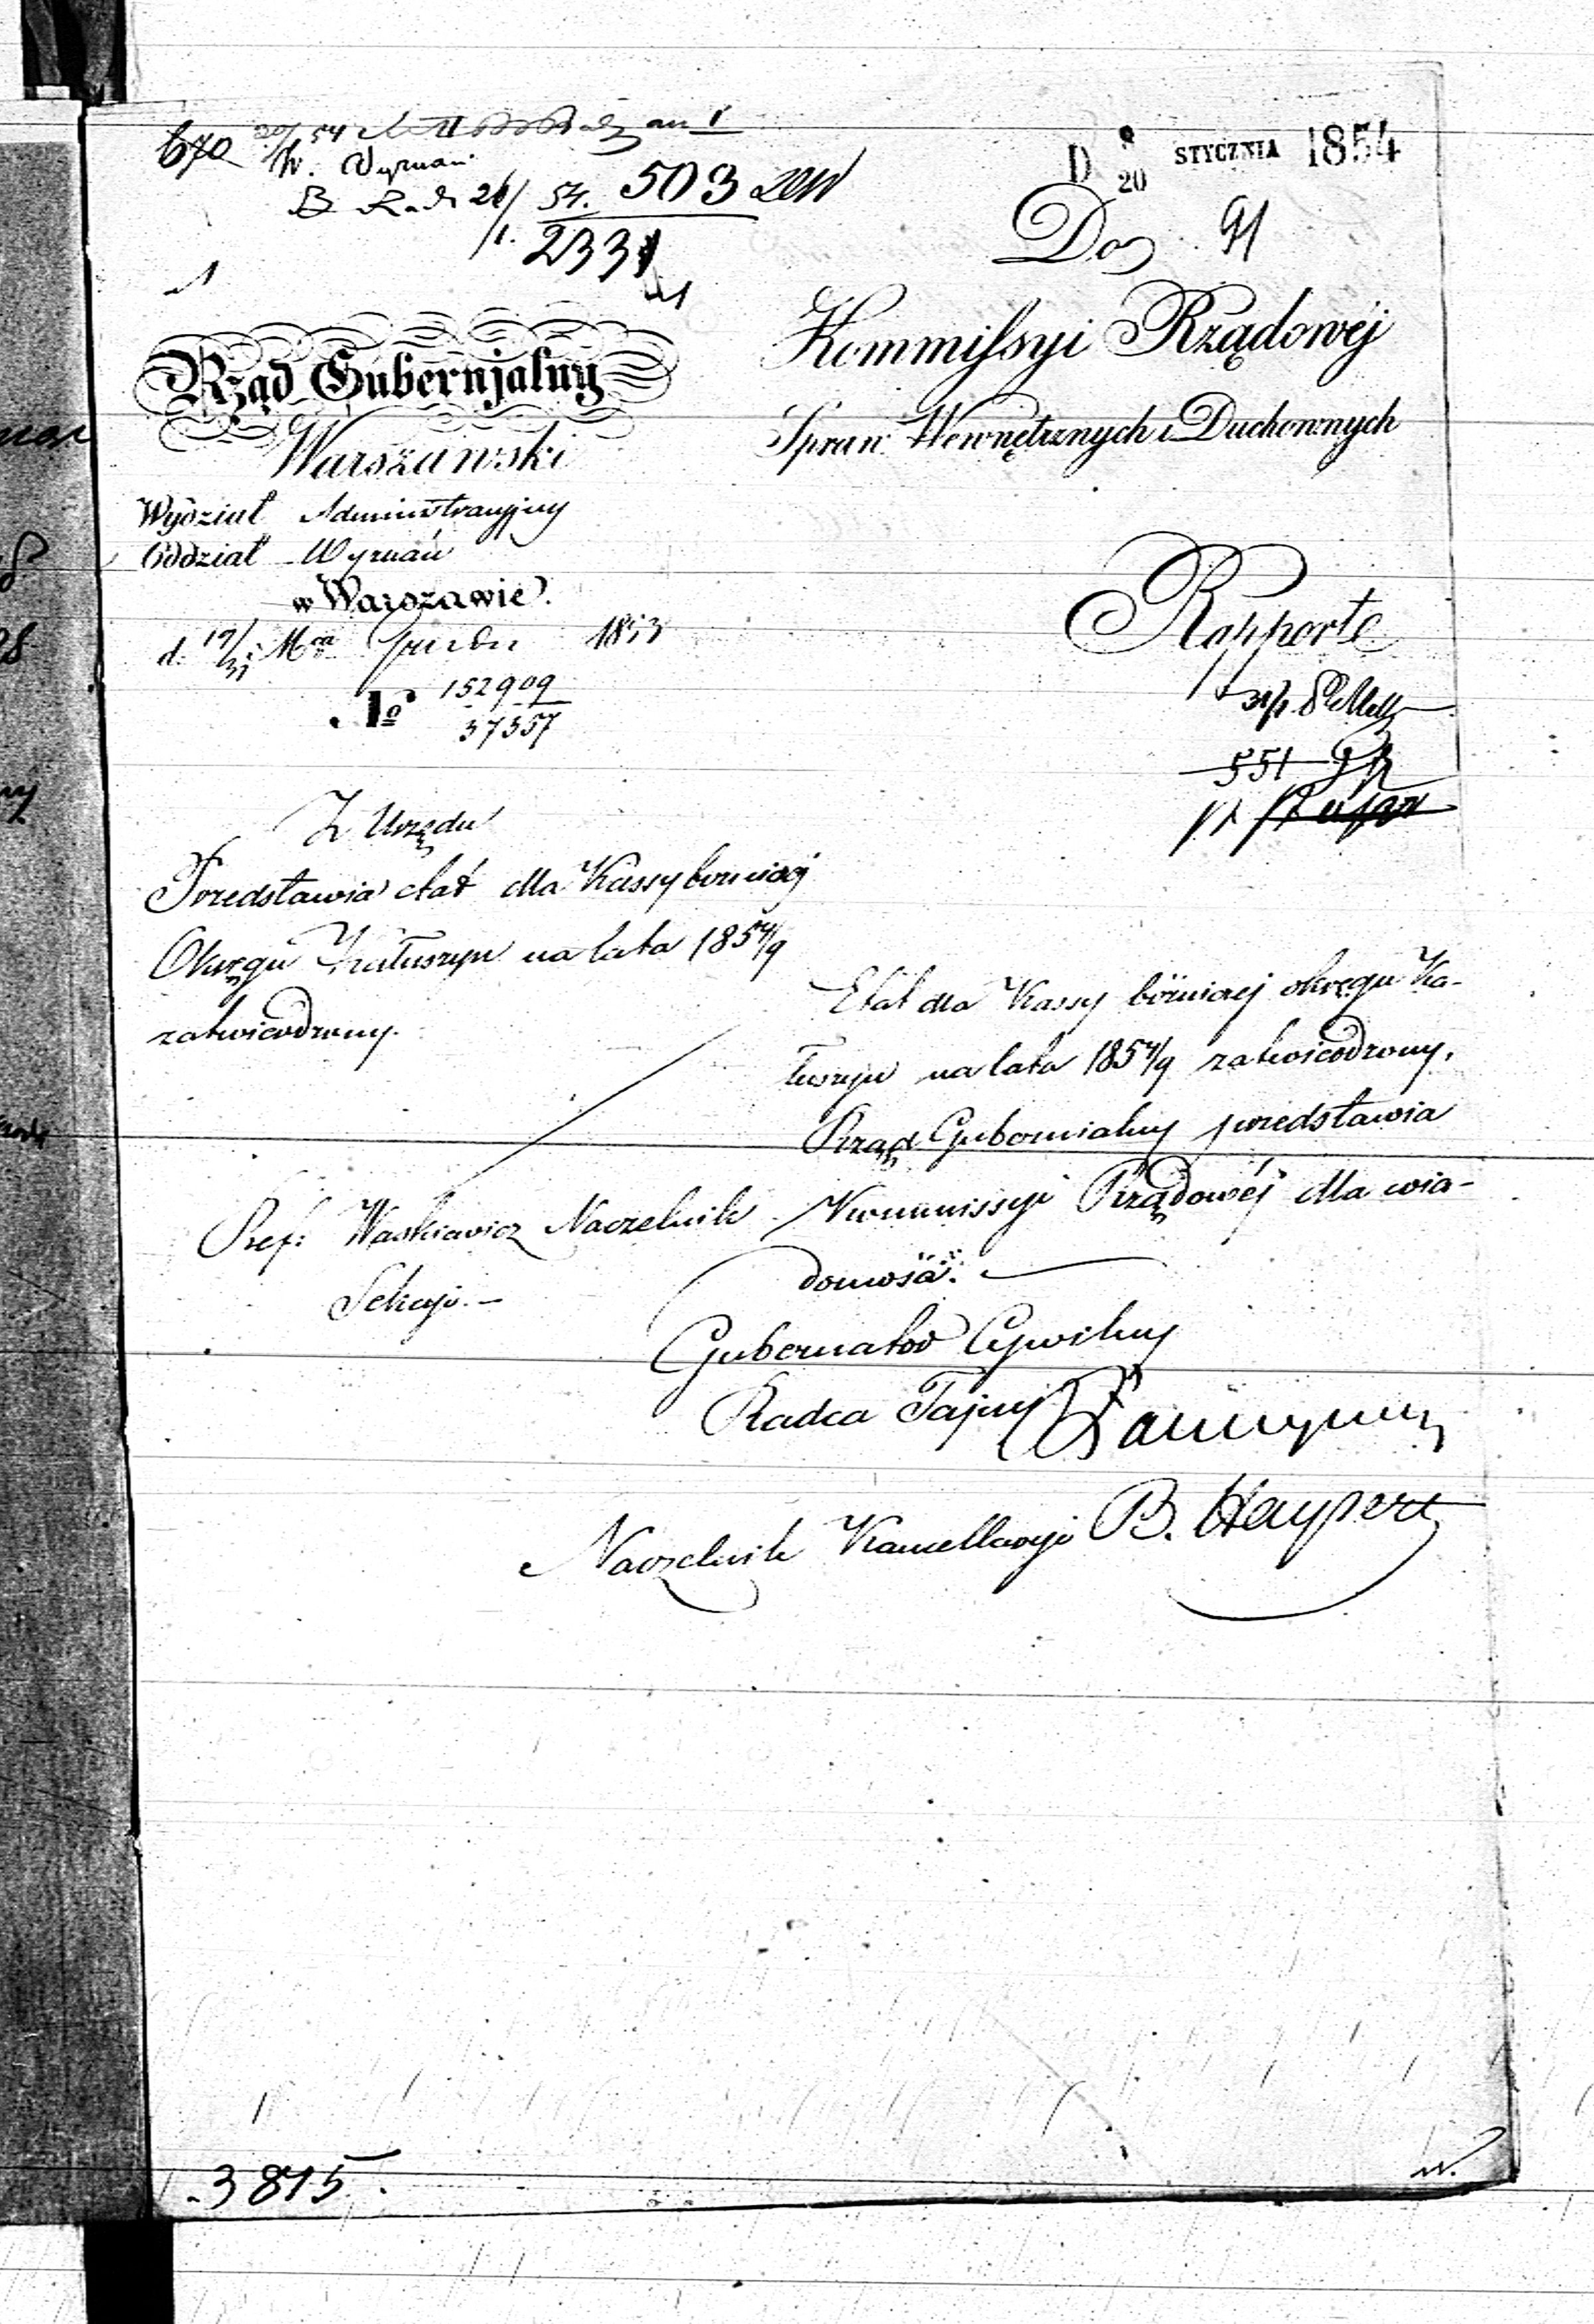 670 20/1 54
W. Wyznań
26/1. 54. 503
2331
D 8/20 STYCZNIA 1854
Do 91
Kommissyi Rządowéj
Spraw Wewnętrznych i Duchownych
Rząd Gubernjalny
Warszawski
Wydział Administracyjny
Oddział Wyznań
w Warszawie.
d. 19/31 Mca Grudnia 1853
No 152909
37357
Rapport
551
Z Urzędu
Przedstawia etat dla Kassy bożniczéj
Okręgu Kałuszyn na lata 1854/9
zatwierdzony.
Etat dla Kassy bóżniczéj okręgu Ka-
łuszyn na lata 1854/9 zatwierdzony,
Rząd Gubernialny przedstawia
Kommissyi Rządowéj dla wia-
domości.
Ref: Waskiewicz Naczelnik
Sekcyi.
Gubernator Cywilny
Radca Tajny
Naczelnik Kancellaryi B. Haypert
3875.